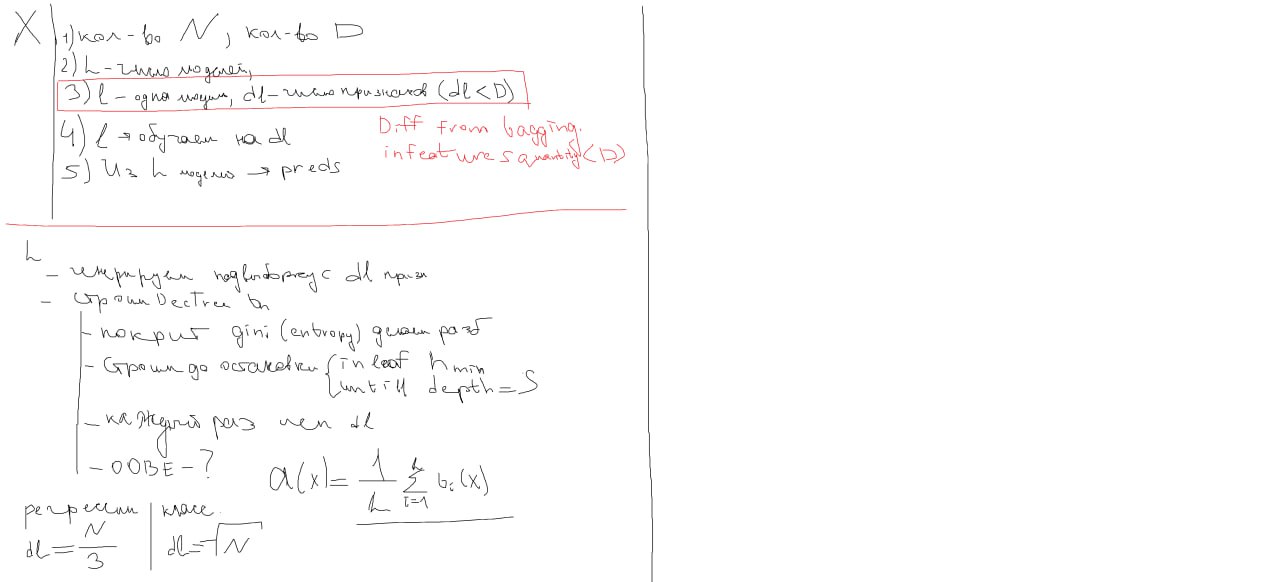 X
1) кол-во N, кол-во D
2) L - число моделей,
3) l - одна модель, dl - число признаков (dl < D)
4) l → обучаем на dl
5) Из L моделей → preds
Diff from bagging.
in features quantity (< D)
L
- генерируем подвыборку с dl призн
- Строим DecTree bn
- по крит gini (entropy) делаем разб
- Строим до остановки { in leaf hmin
until depth = S
- каждый раз исп dl
- OOBE - ?
a(x) = 1/L ∑ i=1 L bi(x)
регрессии | класс.
dl = N/3 | dl = √N